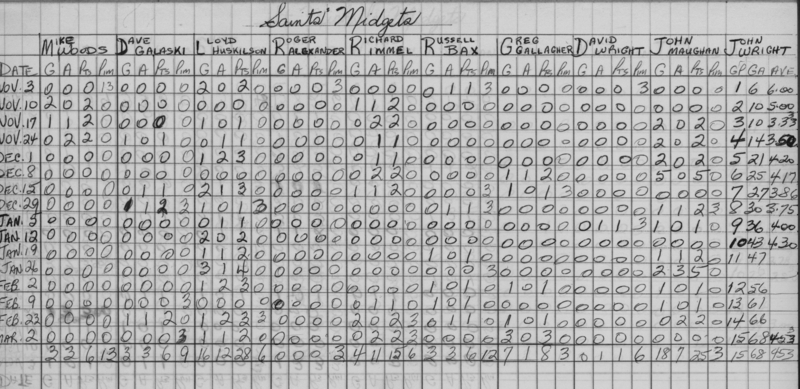 Saints' Midgets
MIKE WOODS DAVE GALASKI LLOYD HUSKILSON ROGER ALEXANDER RICHARD RIMMEL RUSSELL BAX GREG GALLAGHER DAVID WRIGHT JOHN MAUGHAN JOHN WRIGHT
DATE G A Pts Pim G A Pts Pim G A Pts Pim G A Pts Pim G A Pts Pim G A Pts Pim G A Pts Pim G A Pts Pim G A Pts Pim GP GA AVE
NOV. 3 0 0 0 13 0 0 0 0 2 0 2 0 0 0 0 3 0 0 0 0 0 1 1 3 0 0 0 0 0 0 0 3 0 0 0 0 1 6 6.00
NOV. 10 2 0 2 0 0 0 0 0 0 0 0 0 0 0 0 0 1 1 2 0 0 0 0 0 0 0 0 0 0 0 0 0 0 0 0 0 2 10 5.00
NOV. 17 1 1 2 0 0 0 0 0 1 0 1 0 0 0 0 0 0 2 2 0 0 0 0 0 0 0 0 0 0 0 0 0 2 0 2 0 3 10 3.33
NOV. 24 0 2 2 0 1 0 1 0 0 1 1 0 0 0 0 0 0 1 1 0 0 0 0 0 0 0 0 0 0 0 0 0 2 0 2 0 4 14 3.50
DEC. 1 0 0 0 0 0 0 0 0 1 2 3 0 0 0 0 0 0 1 1 0 0 0 0 0 0 0 0 0 0 0 0 0 2 0 2 0 5 21 4.20
DEC. 8 0 0 0 0 0 0 0 0 0 0 0 0 0 0 0 0 0 2 2 0 0 0 0 0 1 1 2 0 0 0 0 0 5 0 5 0 6 25 4.17
DEC. 15 0 0 0 0 0 1 1 0 2 1 3 0 0 0 0 0 1 1 2 0 0 0 0 3 1 0 1 3 0 0 0 0 0 0 0 0 7 27 3.86
DEC. 29 0 0 0 0 1 1 2 3 1 0 1 3 0 0 0 0 0 0 0 0 0 1 1 3 0 0 0 0 0 0 0 0 1 1 2 3 8 30 3.75
JAN. 5 0 0 0 0 0 0 0 0 0 1 1 0 0 0 0 0 0 0 0 0 0 0 0 0 0 0 0 0 0 1 1 3 1 0 1 0 9 36 4.00
JAN. 12 0 0 0 0 0 0 0 0 2 0 2 0 0 0 0 0 0 0 0 0 0 0 0 0 0 0 0 0 0 0 0 0 0 0 0 0 10 43 4.30
JAN. 19 0 0 0 0 0 0 0 0 1 1 2 0 0 0 0 0 0 0 0 0 1 0 1 0 0 0 0 0 0 0 0 0 1 1 2 0 11 47
JAN. 26 0 0 0 0 0 0 0 0 3 1 4 0 0 0 0 0 0 0 0 0 0 0 0 3 0 0 0 0 0 0 0 0 2 3 5 0
FEB. 2 0 0 0 0 0 0 0 0 1 2 3 0 0 0 0 0 0 0 0 0 1 0 1 0 1 0 1 0 0 0 0 0 1 0 1 0 12 56
FEB. 9 0 0 0 0 0 0 0 3 0 0 0 0 0 0 0 0 0 1 1 0 1 0 1 0 0 0 0 0 0 0 0 0 1 0 1 0 13 61
FEB. 23 0 0 0 0 1 1 2 0 1 2 3 3 0 0 0 0 2 0 2 3 0 1 1 0 1 0 1 0 0 0 0 0 0 2 2 0 14 66
MAR. 2 0 0 0 0 0 0 0 3 1 1 2 0 0 0 0 0 0 2 2 2 0 0 0 0 3 0 3 0 0 0 0 0 0 0 0 0 15 68 4.53
3 3 6 13 3 3 6 9 16 12 28 6 0 0 0 3 4 11 15 6 3 3 6 12 7 1 8 3 0 1 1 6 18 7 25 3 15 68 4.53